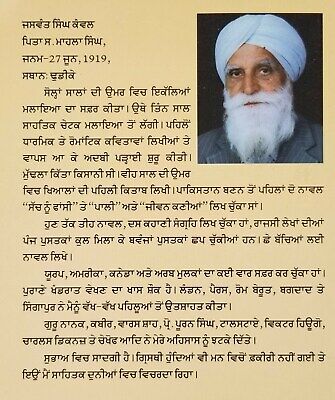 ਜਸਵੰਤ ਸਿੰਘ ਕੰਵਲ
ਪਿਤਾ ਸ. ਮਾਹਲਾ ਸਿੰਘ,
ਜਨਮ–27 ਜੂਨ, 1919,
ਸਥਾਨ: ਢੁਡੀਕੇ
ਸੋਲ੍ਹਾਂ ਸਾਲਾਂ ਦੀ ਉਮਰ ਵਿਚ ਇਕੱਲਿਆਂ
ਮਲਾਇਆ ਦਾ ਸਫ਼ਰ ਕੀਤਾ। ਉਥੇ ਤਿੰਨ ਸਾਲ
ਸਾਹਤਿਕ ਚੇਟਕ ਮਲਾਇਆ ਤੋਂ ਲੱਗੀ। ਪਹਿਲੋਂ
ਧਾਰਮਿਕ ਤੇ ਰੋਮਾਂਟਿਕ ਕਵਿਤਾਵਾਂ ਲਿਖੀਆਂ ਤੇ
ਵਾਪਸ ਆ ਕੇ ਅਦਬੀ ਪੜ੍ਹਾਈ ਸ਼ੁਰੂ ਕੀਤੀ।
ਮੁੱਢਲਾ ਕਿੱਤਾ ਕਿਸਾਨੀ ਸੀ। ਵੀਹ ਸਾਲ ਦੀ ਉਮਰ
ਵਿਚ ਖਿਆਲਾਂ ਦੀ ਪਹਿਲੀ ਕਿਤਾਬ ਲਿਖੀ। ਪਾਕਿਸਤਾਨ ਬਣਨ ਤੋਂ ਪਹਿਲਾਂ ਦੋ ਨਾਵਲ
“ਸੱਚ ਨੂੰ ਫਾਂਸੀ” ਤੇ “ਪਾਲੀ” ਅਤੇ “ਜੀਵਨ ਕਣੀਆਂ” ਲਿਖ ਚੁੱਕਾ ਸਾਂ।
ਹੁਣ ਤੱਕ ਤੀਹ ਨਾਵਲ, ਦਸ ਕਹਾਣੀ ਸੰਗ੍ਰਹਿ ਲਿਖ ਚੁੱਕਾ ਹਾਂ, ਰਾਜਸੀ ਲੇਖਾਂ ਦੀਆਂ
ਪੰਜ ਪੁਸਤਕਾਂ ਕੁਲ ਮਿਲਾ ਕੇ ਬਵੰਜਾਂ ਪੁਸਤਕਾਂ ਛਪ ਚੁੱਕੀਆਂ ਹਨ। ਛੇ ਬੱਚਿਆਂ ਲਈ
ਨਾਵਲ ਲਿਖੇ।
ਯੂਰਪ, ਅਮਰੀਕਾ, ਕਨੇਡਾ ਅਤੇ ਅਰਬ ਮੁਲਕਾਂ ਦਾ ਕਈ ਵਾਰ ਸਫ਼ਰ ਕਰ ਚੁੱਕਾ ਹਾਂ।
ਪੁਰਾਣੇ ਖੰਡਰ ਵੇਖਣ ਦਾ ਖਾਸ ਸ਼ੌਕ ਹੈ। ਲੰਡਨ, ਪੈਰਸ, ਰੋਮ ਬੇਰੂਤ, ਬਗਦਾਦ ਤੇ
ਸਿੰਗਾਪੁਰ ਨੇ ਮੈਨੂੰ ਵੱਖ-ਵੱਖ ਪਹਿਲੂਆਂ ਤੋਂ ਉਤਸ਼ਾਹਤ ਕੀਤਾ।
ਗੁਰੂ ਨਾਨਕ, ਕਬੀਰ, ਵਾਰਸ ਸ਼ਾਹ, ਪ੍ਰੋ. ਪੂਰਨ ਸਿੰਘ, ਟਾਲਸਟਾਏ, ਵਿਕਟਰ ਹਿਊਗੋ,
ਚਾਰਲਸ ਡਿਕਨਜ਼ ਤੇ ਚੇਖੋਫ ਆਦਿ ਨੇ ਮੇਰੇ ਅਹਿਸਾਸ ਨੂੰ ਝਟਕੇ ਦਿੱਤੇ।
ਸੁਭਾਅ ਵਿਚ ਸਾਦਗੀ ਹੈ। ਗ੍ਰਿਸਥੀ ਹੁੰਦਿਆਂ ਵੀ ਮਨ ਵਿਚੋਂ ਫ਼ਕੀਰੀ ਨਹੀਂ ਗਈ ਤੇ
ਇਉਂ ਮੈਂ ਸਾਹਿਤਕ ਦੁਨੀਆਂ ਵਿਚ ਵਿਚਰਦਾ ਰਿਹਾ।